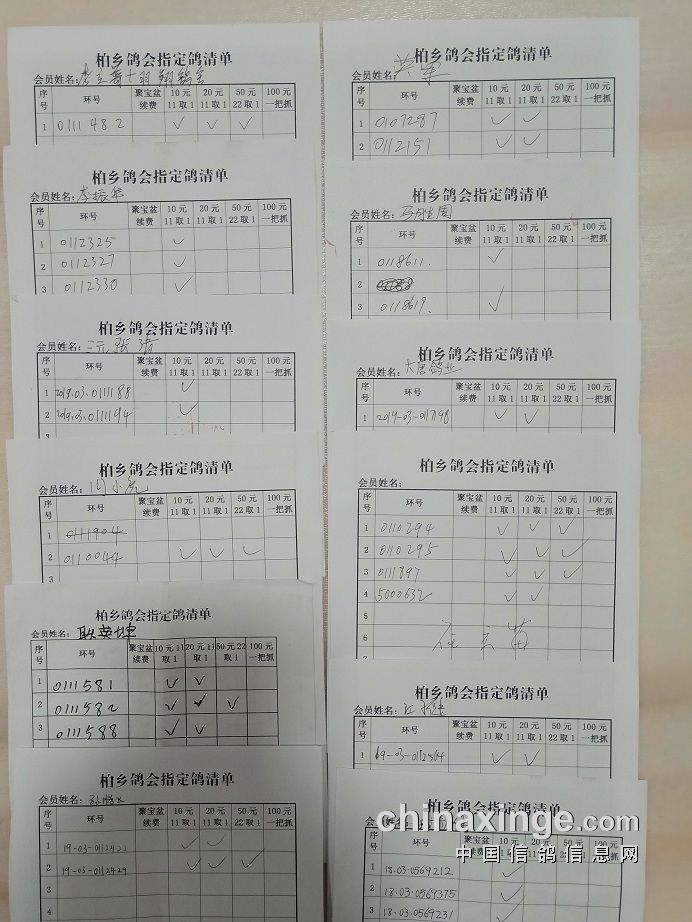 柏乡鸽会指定鸽清单
会员姓名:
序号 环号 聚宝盆续费 10元11取1 20元11取1 50元22取1 100元一把抓
1 0111482 ✓ ✓ ✓
柏乡鸽会指定鸽清单
会员姓名:李振华
序号 环号 聚宝盆续费 10元11取1 20元11取1 50元22取1 100元一把抓
1 0112325 ✓
2 0112327 ✓
3 0112330 ✓
柏乡鸽会指定鸽清单
会员姓名:三元张清
序号 环号 聚宝盆续费 10元11取1 20元11取1 50元22取1 100元一把抓
1 2019.03.0111188 ✓
2 2019.03.0111194 ✓
3
柏乡鸽会指定鸽清单
会员姓名:闫小虎
序号 环号 聚宝盆续费 10元11取1 20元11取1 50元22取1 100元一把抓
1 0111904
2 0110044 ✓ ✓ ✓
3
柏乡鸽会指定鸽清单
会员姓名:耿英坤
序号 环号 聚宝盆续费 10元11取1 20元11取1 50元22取1 100元一把抓
1 0111581 ✓ ✓
2 0111582 ✓ ✓ ✓
3 0111588 ✓ ✓
柏乡鸽会指定鸽清单
会员姓名:
序号 环号 聚宝盆续费 10元11取1 20元11取1 50元22取1 100元一把抓
1 19-03-0112422 ✓ ✓
2 19-03-0112429 ✓ ✓ ✓
3
4
柏乡鸽会指定鸽清单
会员姓名:英军
序号 环号 聚宝盆续费 10元11取1 20元11取1 50元22取1 100元一把抓
1 0107287 ✓ ✓
2 0112151 ✓ ✓
柏乡鸽会指定鸽清单
会员姓名:
序号 环号 聚宝盆续费 10元11取1 20元11取1 50元22取1 100元一把抓
1 0118611. ✓
2
3 0118619. ✓
柏乡鸽会指定鸽清单
会员姓名:大唐鸽业
序号 环号 聚宝盆续费 10元11取1 20元11取1 50元22取1 100元一把抓
1 2019-03-0117198 ✓ ✓
柏乡鸽会指定鸽清单
会员姓名:
序号 环号 聚宝盆续费 10元11取1 20元11取1 50元22取1 100元一把抓
1 0110294 ✓ ✓ ✓
2 0110295 ✓ ✓ ✓
3 0111897 ✓ ✓ ✓
4 5000632 ✓ ✓
5
6
7
柏乡鸽会指定鸽清单
会员姓名:
序号 环号 聚宝盆续费 10元11取1 20元11取1 50元22取1 100元一把抓
1 19-03-0112564 ✓ ✓
柏乡鸽会指定鸽清单
会员姓名:
序号 环号 聚宝盆续费 10元11取1 20元11取1 50元22取1 100元一把抓
1 18.03.0569212 ✓
2 18.03.0569375 ✓
3 18.03.0569231 ✓
chinaxinge.com
中国信鸽信息网